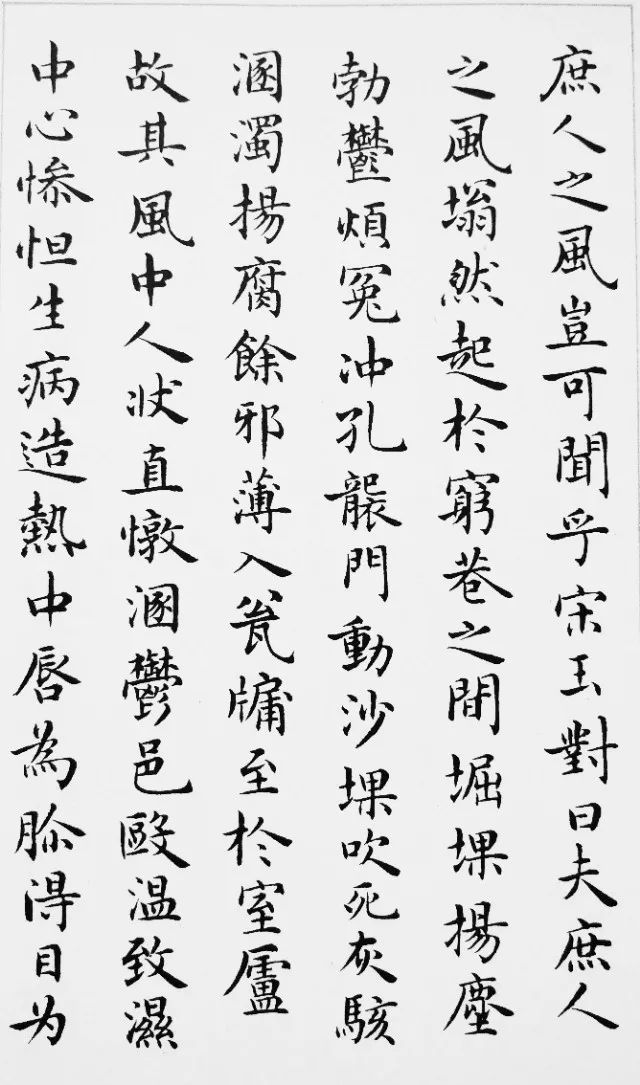 庶人之風豈可聞乎宋玉對曰夫庶人
之風塕然起於窮巷之間堀堁揚塵
勃鬱煩冤冲孔襲門動沙堁吹死灰駭
溷濁揚腐餘邪薄入瓮牖至於室廬
故其風中人狀直憞溷鬱邑毆温致濕
中心惨怛生病造熱中唇為胗得目为